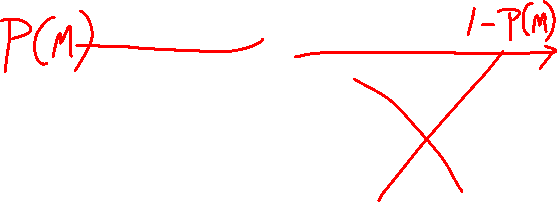 P(M)
1-P(M)